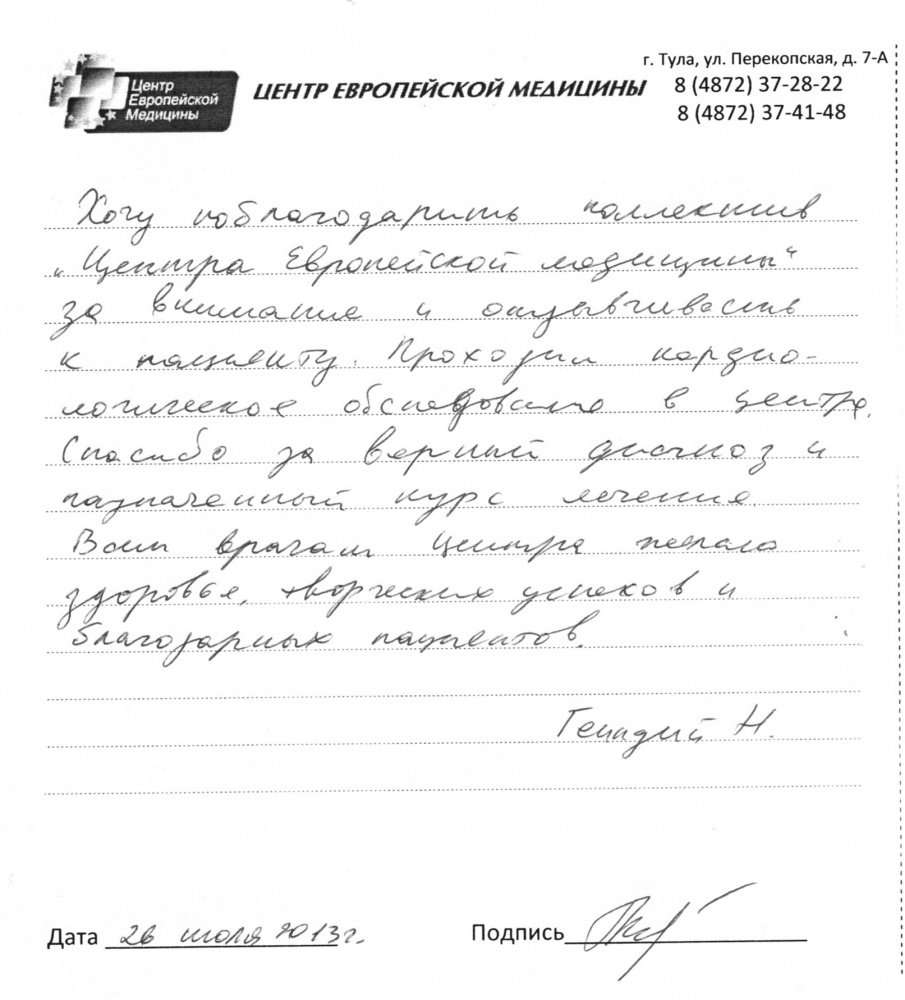 Центр
Европейской
Медицины
ЦЕНТР ЕВРОПЕЙСКОЙ МЕДИЦИНЫ
г. Тула, ул. Перекопская, д. 7-А
8 (4872) 37-28-22
8 (4872) 37-41-48
Хочу поблагодарить коллектив
„Центра Европейской медицины“
за внимание и отзывчивость
к пациенту. Проходил кардио-
логическое обследование в центре.
Спасибо за верный диагноз и
назначенный курс лечения.
Всем врачам центра желаю
здоровья, творческих успехов и
благодарных пациентов.
Генадий Н.
Дата 26 июля 2013г.
Подпись